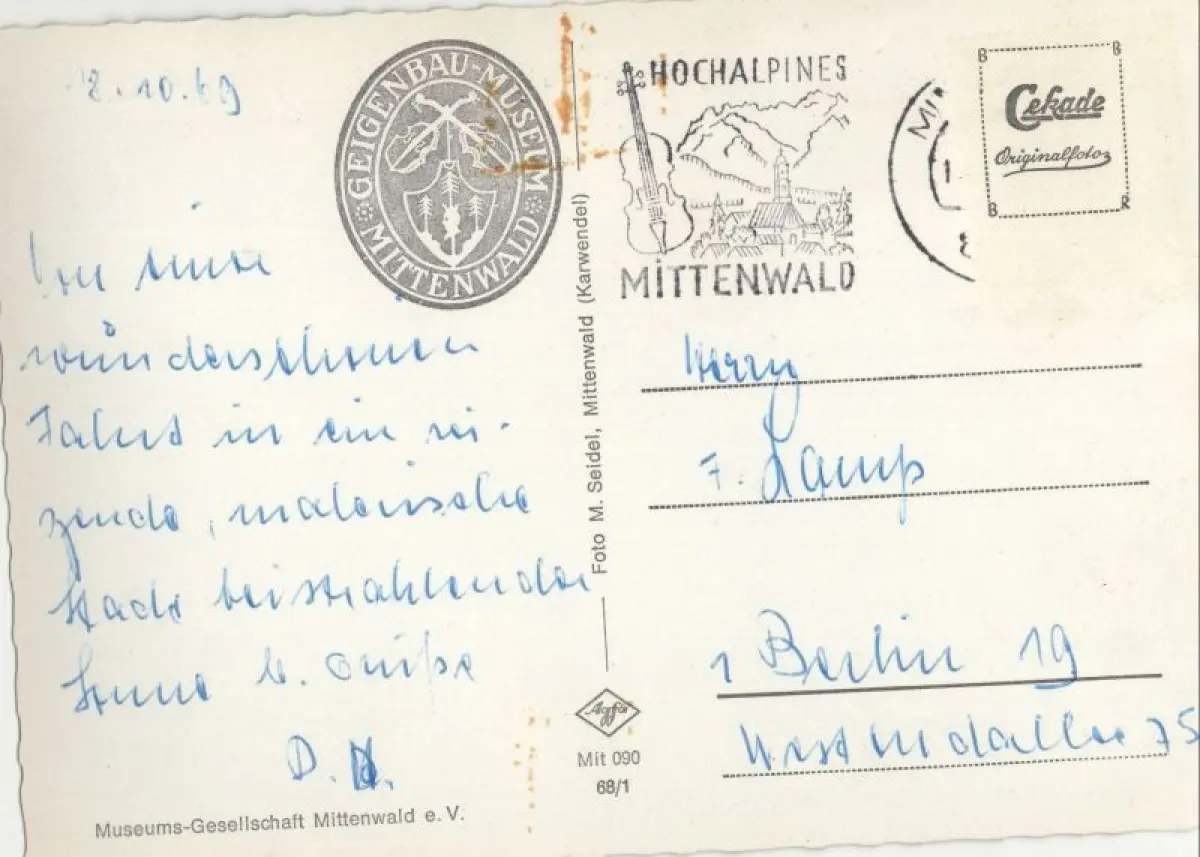 2.10.69
GEIGENBAU-MUSEUM
MITTENWALD
HOCHALPINES
MITTENWALD
MI
B B
Cekade
Originalfoto
B R
Von einer
wunderschönen
Fahrt in ein rei-
zende, malerische
Stadt bei strahlender
Sonne b. Grüße
D. H.
Museums-Gesellschaft Mittenwald e. V.
Foto M. Seidel, Mittenwald (Karwendel)
Agfa
Mit 090
68/1
Herrn
F. Lamp
1 Berlin 19
Westendallee 75